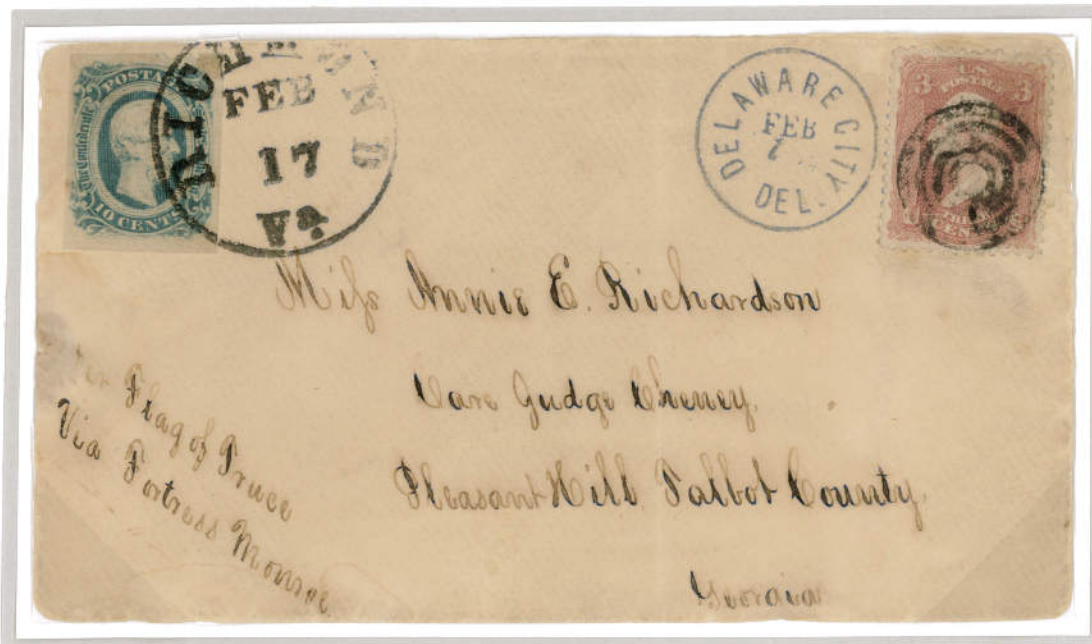 The Confederate
POSTAGE
10 CENTS
RICHMOND
FEB
17
Va
DELAWARE CITY
FEB
DEL.
3 U.S. 3
POSTAGE
CENTS
Miſs Annie E. Richardson
Care Judge Cheney.
Pleasant Hill Talbot County,
Georgia
Per Flag of Truce
Via Fortress Monroe